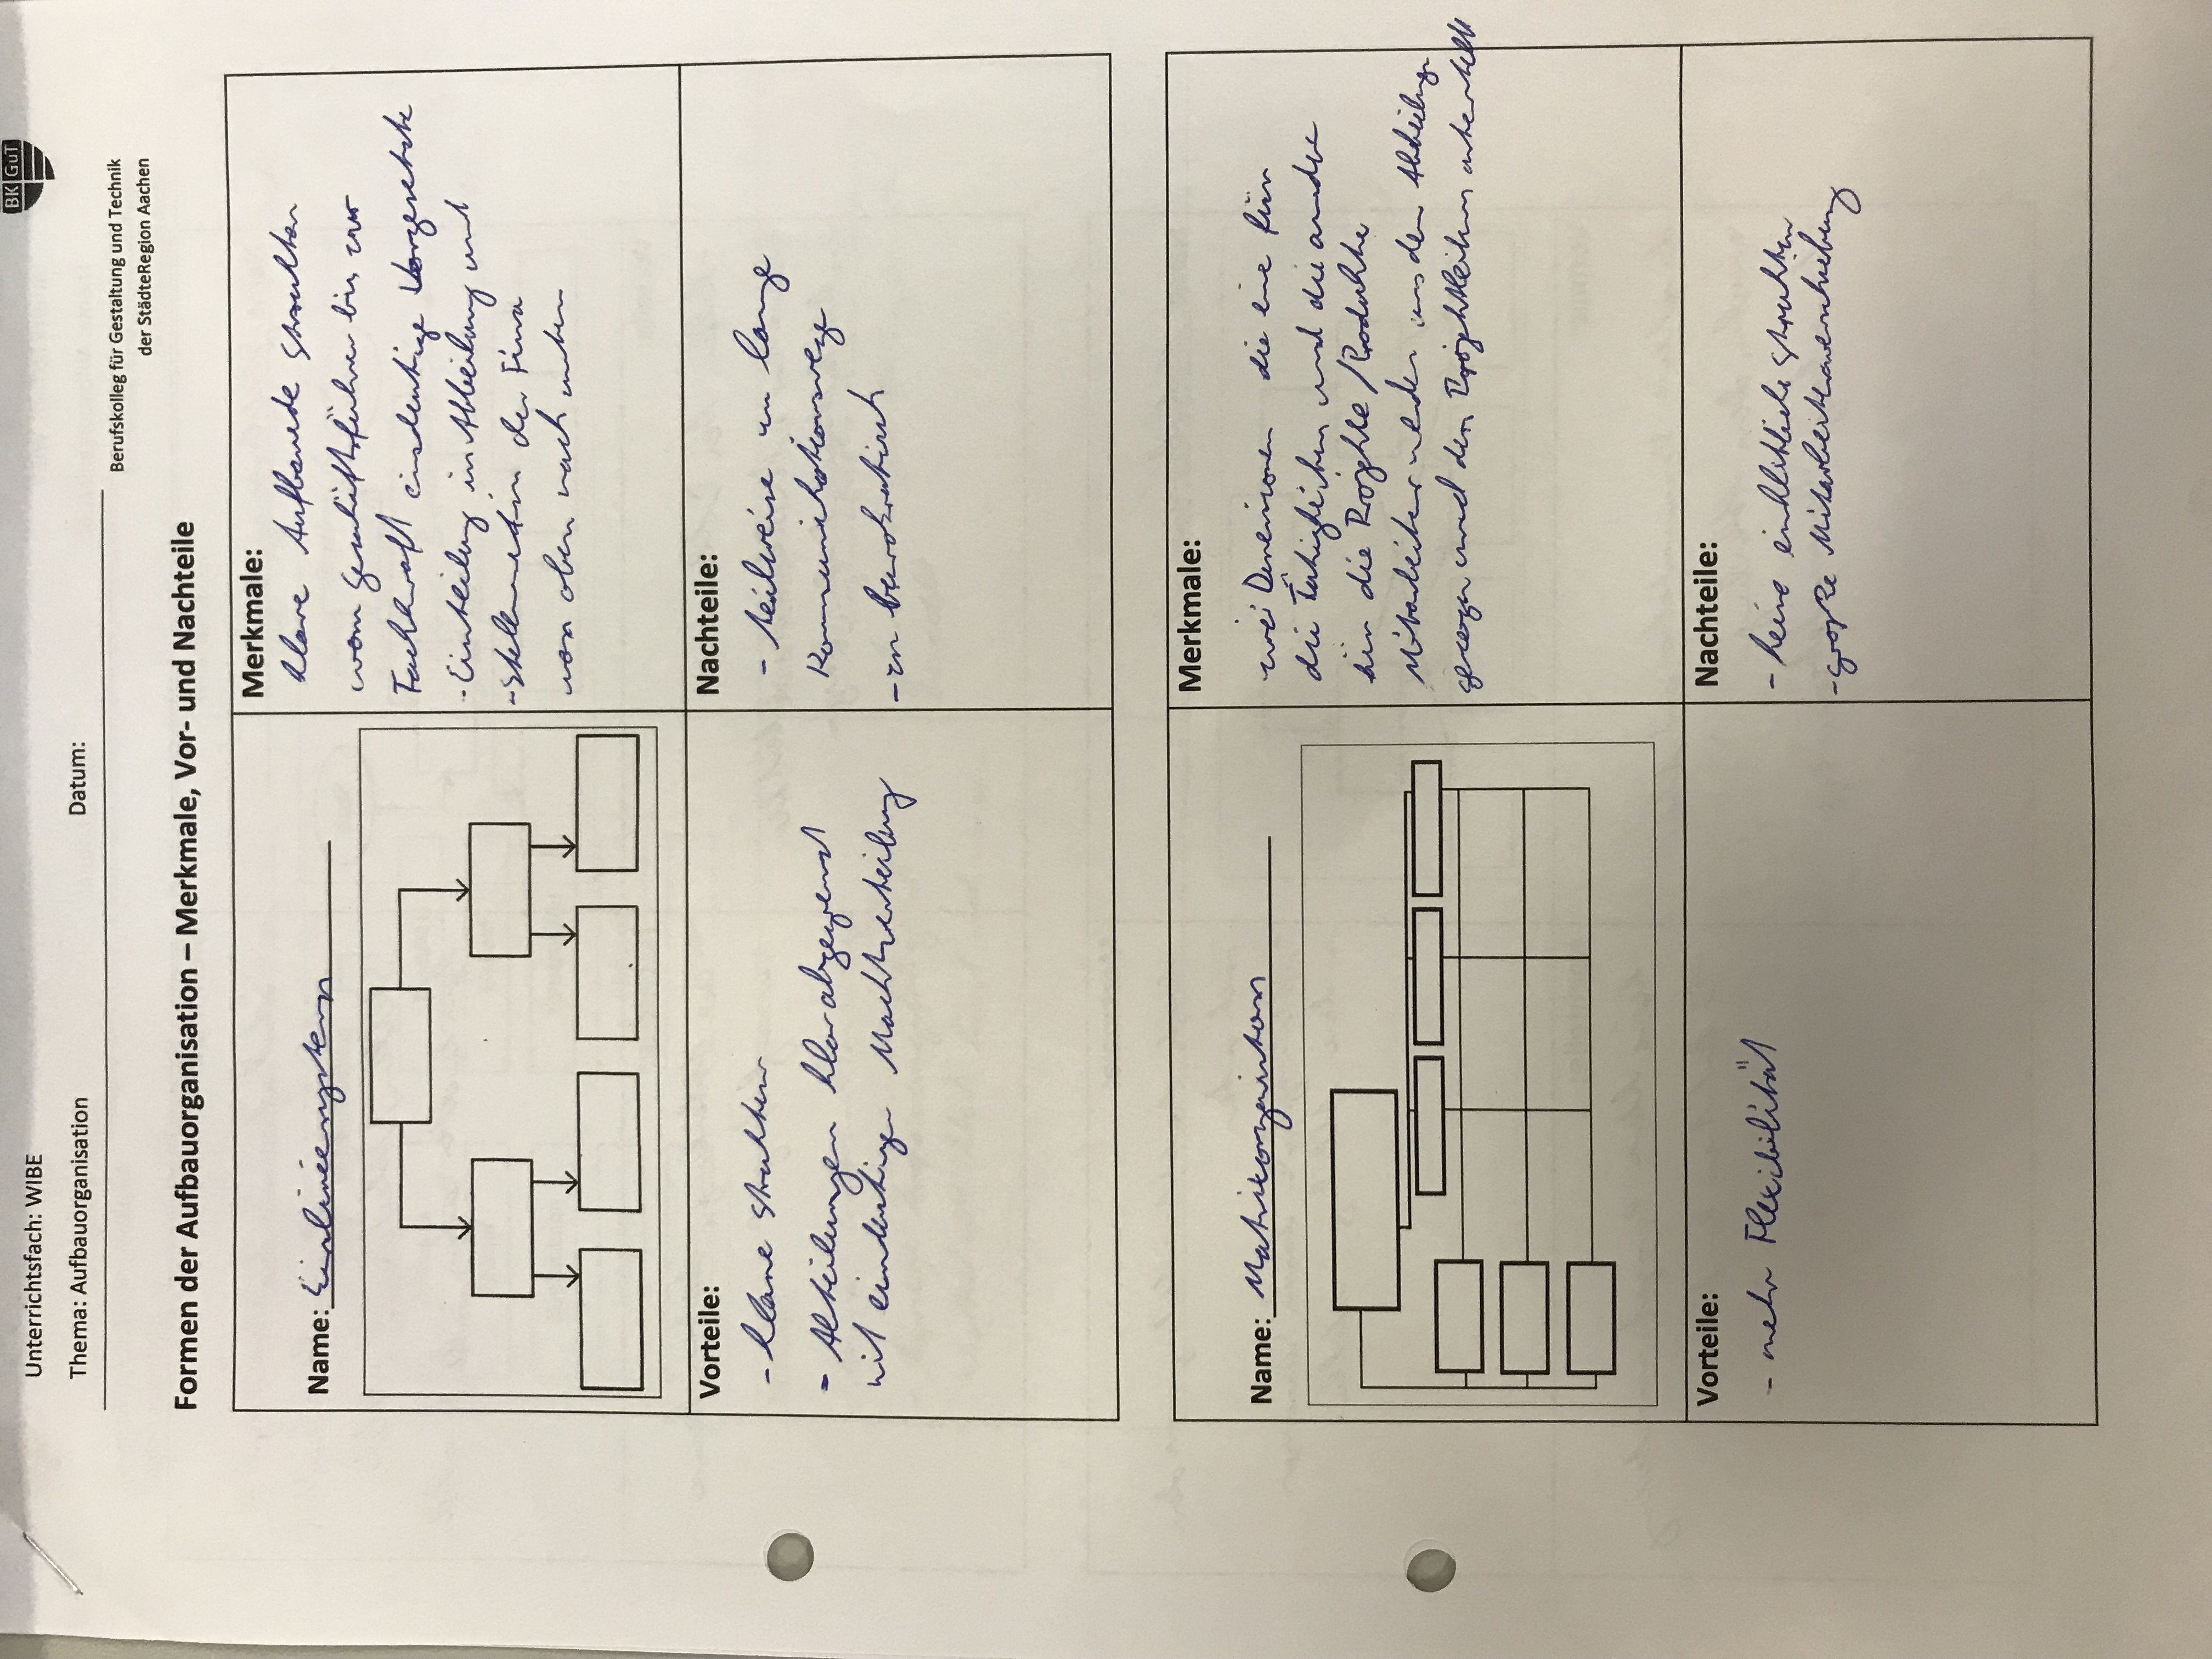 BK GuT
Unterrichtsfach: WIBE
Thema: Aufbauorganisation Datum:
Berufskolleg für Gestaltung und Technik
der StädteRegion Aachen
Formen der Aufbauorganisation – Merkmale, Vor- und Nachteile
Name: Einliniensystem
Merkmale:
klare Struktur
vom Geschäftsführer bis zur
Fachkraft eindeutige Vorgesetzte
- Einteilung in Abteilung und
der Firma
von oben nach unten
Vorteile:
- klare Struktur
- Abteilungen klar abgegrenzt
mit eindeutiger Machtverteilung
Nachteile:
- teilweise zu lange
Kommunikationswege
- zu bürokratisch
Name: Matrixorganisation
Merkmale:
zwei Dimensionen die eine für
die und die andere
für die Projekte / Produkte
Mitarbeiter werden aus den Abteilungen
gezogen und den Projektleitern unterstellt
Vorteile:
- mehr Flexibilität
Nachteile:
- keine einheitliche Struktur
- große Mitarbeiterverschiebung